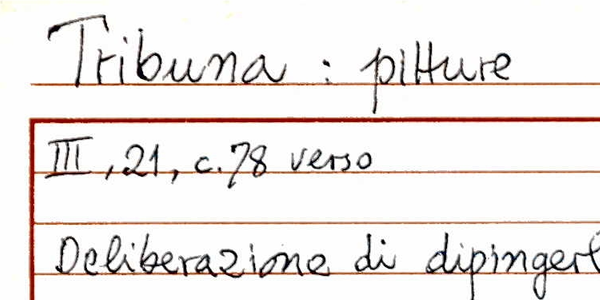 Tribuna : pitture
III, 21, c. 78 verso
Deliberazione di dipingerl